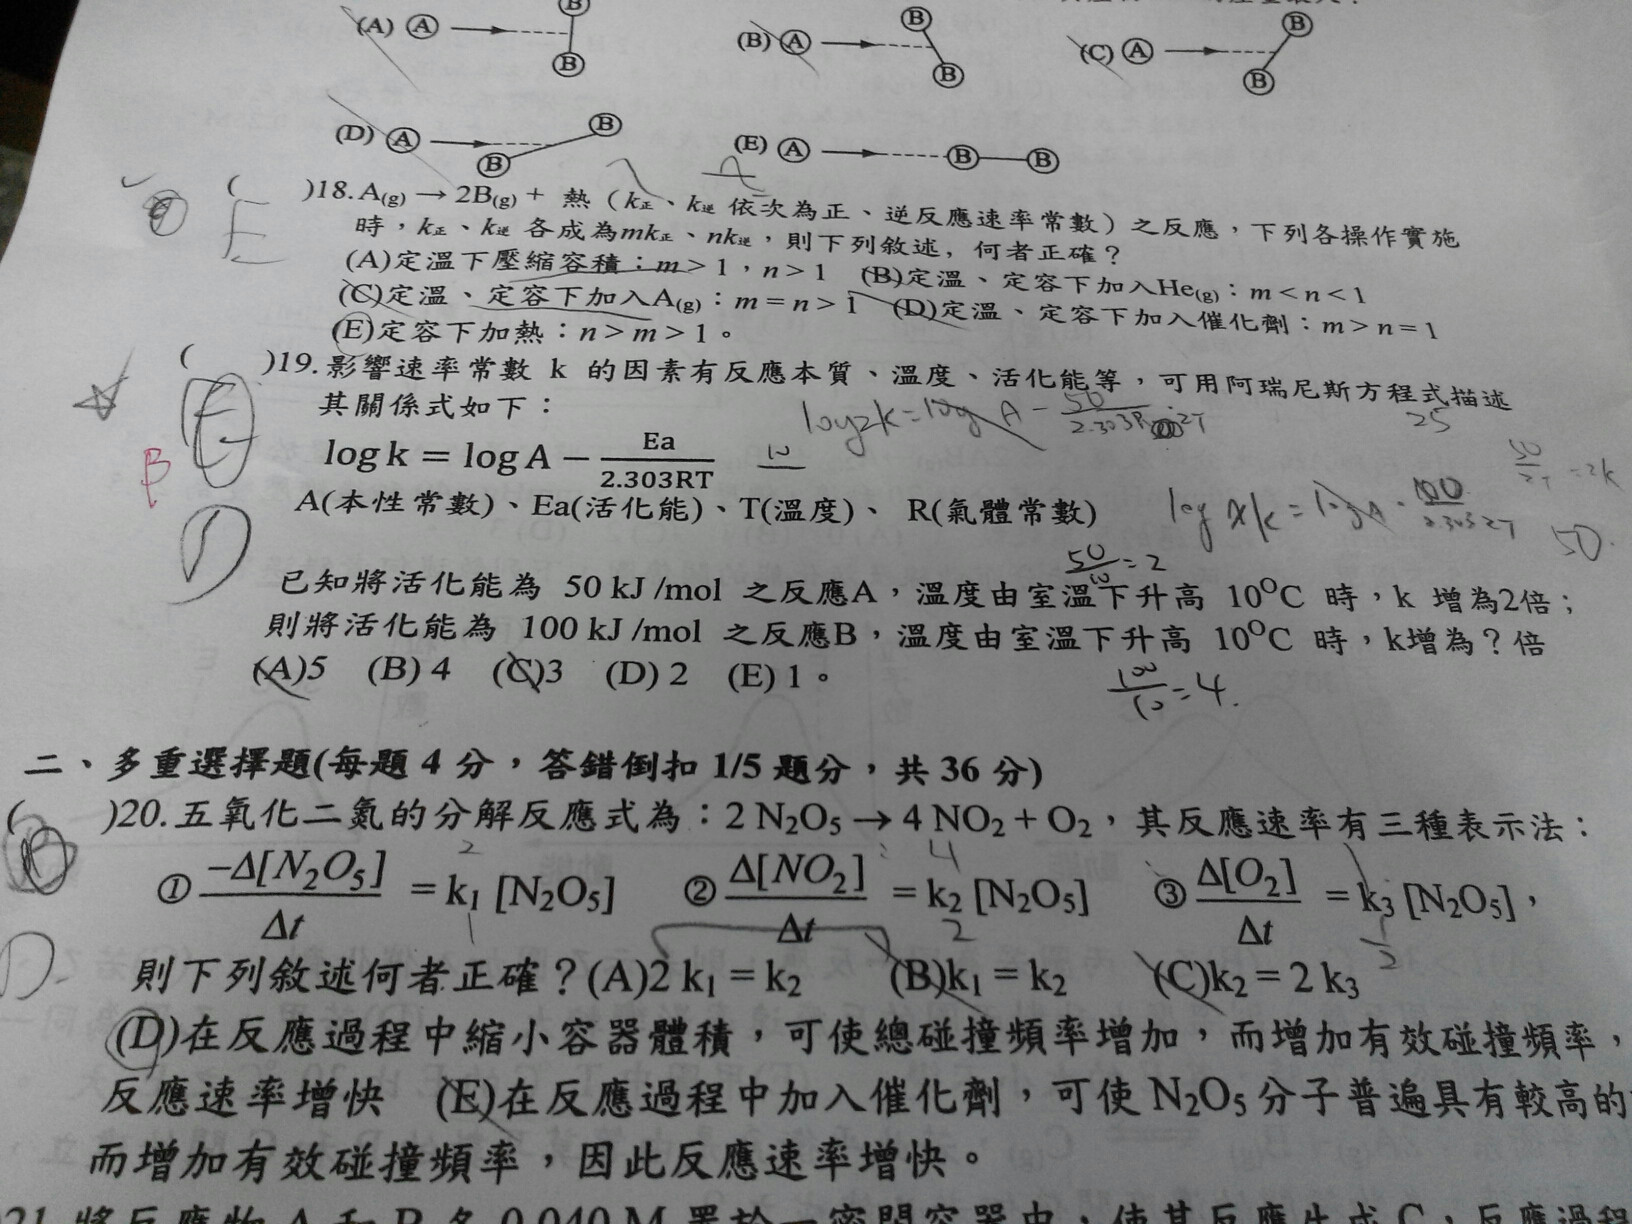 (A) A B B
(B) A B B
(C) A B B
(D) A B B
(E) A B B
( )18. A(g) → 2B(g) + 熱（k正、k逆 依次為正、逆反應速率常數）之反應，下列各操作實施
E
時，k正、k逆 各成為mk正、nk逆，則下列敘述, 何者正確？
(A)定溫下壓縮容積：m > 1，n > 1 (B)定溫、定容下加入He(g)：m < n < 1
(C)定溫、定容下加入A(g)：m = n > 1 (D)定溫、定容下加入催化劑：m > n = 1
(E)定容下加熱：n > m > 1。
( )19. 影響速率常數 k 的因素有反應本質、溫度、活化能等，可用阿瑞尼斯方程式描述
其關係式如下：
log2k = log A - 50
25
E
B
log k = log A − Ea / 2.303RT
10
50 / 2T = 2k
A(本性常數)、Ea(活化能)、T(溫度)、 R(氣體常數)
log xk = log A - 100 / 2.303 2T
50
D
50 / 10 = 2
已知將活化能為 50 kJ /mol 之反應A，溫度由室溫下升高 10⁰C 時，k 增為2倍；
則將活化能為 100 kJ /mol 之反應B，溫度由室溫下升高 10⁰C 時，k增為？倍
(A)5 (B) 4 (C)3 (D) 2 (E) 1。
100 / 10 = 4.
二、多重選擇題(每題 4 分，答錯倒扣 1/5 題分，共 36 分)
( )20. 五氧化二氮的分解反應式為：2 N₂O₅ → 4 NO₂ + O₂，其反應速率有三種表示法：
2 4 1
① −Δ[N₂O₅] / Δt = k₁ [N₂O₅] ② Δ[NO₂] / Δt = k₂ [N₂O₅] ③ Δ[O₂] / Δt = k₃ [N₂O₅]，
1 2 1/2
D.
則下列敘述何者正確？(A)2 k₁ = k₂ (B)k₁ = k₂ (C)k₂ = 2 k₃
(D)在反應過程中縮小容器體積，可使總碰撞頻率增加，而增加有效碰撞頻率，
反應速率增快 (E)在反應過程中加入催化劑，可使 N₂O₅ 分子普遍具有較高的
而增加有效碰撞頻率，因此反應速率增快。
21. 將反應物 A 和 B 各 0.040 M 置於一密閉容器中，使其反應生成 C，反應過程